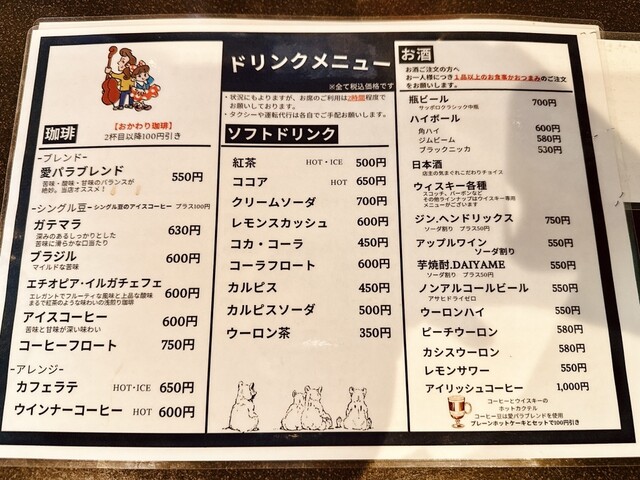 ドリンクメニュー
※全て税込価格です
・状況にもよりますが、お席のご利用は2時間程度で
お願いしております。
・タクシーや運転代行は各自でご手配お願いします。
【おかわり珈琲】
2杯目以降100円引き
珈琲
-ブレンド-
愛パラブレンド 550円
苦味・酸味・甘味のバランスが
絶妙。当店オススメ!
-シングル豆- シングル豆のアイスコーヒー プラス100円
ガテマラ 630円
深みのあるしっかりとした
苦味に滑らかな口当たり
ブラジル 600円
マイルドな苦味
エチオピア・イルガチェフェ 600円
エレガントでフルーティな風味と上品な酸味
まるで紅茶のような味わいの浅煎り珈琲
アイスコーヒー 600円
苦味と甘味が深い味わい
コーヒーフロート 750円
-アレンジ-
カフェラテ HOT・ICE 650円
ウインナーコーヒー HOT 600円
ソフトドリンク
紅茶 HOT・ICE 500円
ココア HOT 650円
クリームソーダ 700円
レモンスカッシュ 600円
コカ・コーラ 450円
コーラフロート 600円
カルピス 450円
カルピスソーダ 500円
ウーロン茶 350円
お酒
お酒ご注文の方へ
お一人様につき1品以上のお食事かおつまみのご注文
をお願いします。
瓶ビール 700円
サッポロクラシック中瓶
ハイボール
角ハイ 600円
ジムビーム 580円
ブラックニッカ 530円
日本酒
店主の気まぐれこだわりチョイス
ウィスキー各種
スコッチ、バーボンなど
その他ラインナップはウイスキー専用
メニューがございます
ジン.ヘンドリックス 750円
ソーダ割り プラス50円
アップルワイン 550円
ソーダ割り
芋焼酎.DAIYAME 550円
ソーダ割り プラス50円
ノンアルコールビール 550円
アサヒドライゼロ
ウーロンハイ 550円
ピーチウーロン 580円
カシスウーロン 580円
レモンサワー 550円
アイリッシュコーヒー 1,000円
コーヒーとウイスキーの
ホットカクテル
コーヒー豆は愛パラブレンドを使用
プレーンホットケーキとセットで100円引き